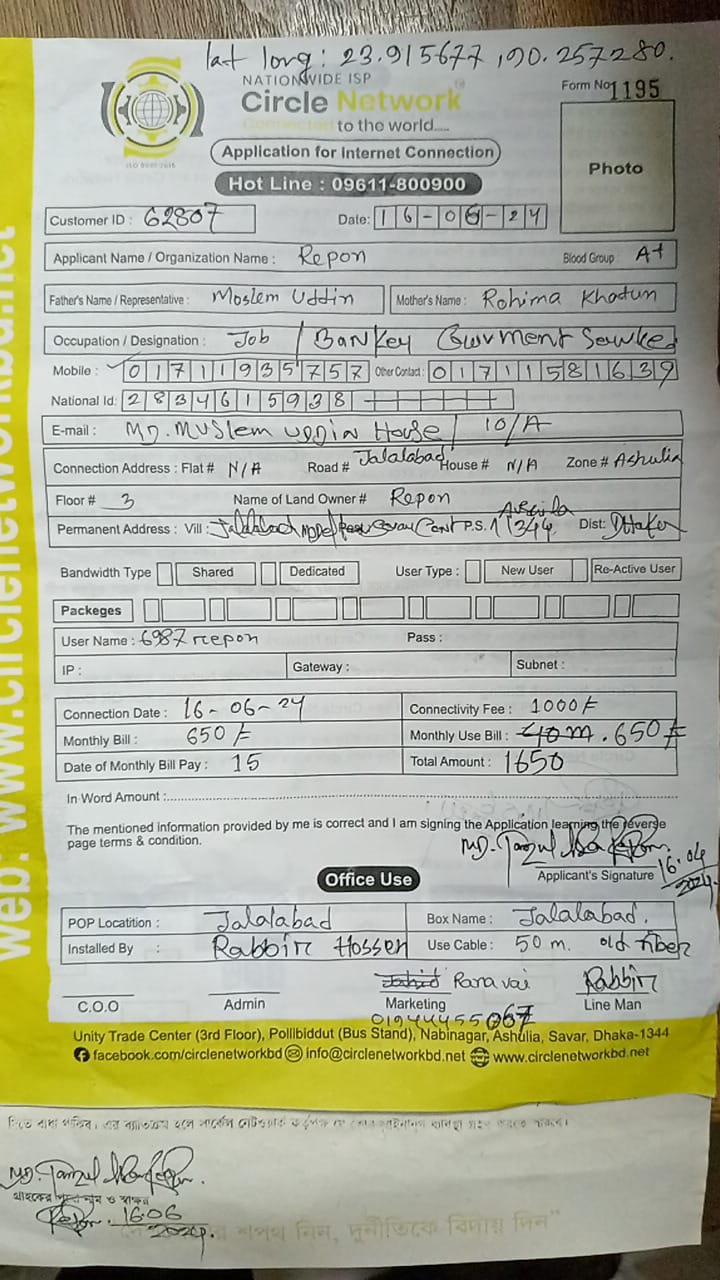 lat long: 23.915677, 90.257280.
NATIONWIDE ISP
Circle Network
Connected to the world.....
ISO 9001:2015
Form No 1195
Application for Internet Connection
Photo
Hot Line : 09611-800900
Customer ID : 62807 Date: 16-06-24
Applicant Name / Organization Name : Repon Blood Group : A+
Father's Name / Representative : Moslem Uddin Mother's Name : Rohima Khatun
Occupation / Designation : Job / Bankey Guvment
Mobile : 01711935757 Other Contact : 01711581639
National Id: 2834615938
E-mail : MD. Muslem uddin House / 10/A
Connection Address : Flat # N/A Road # Jalalabad House # N/A Zone # Ashulia
Floor # 3 Name of Land Owner # Repon
Permanent Address : Vill : Jalalabad P.S. 1344 Dist: Dhaka
Bandwidth Type Shared Dedicated User Type : New User Re-Active User
Packeges
User Name : 6987repon Pass :
IP : Gateway : Subnet :
Connection Date : 16-06-24 Connectivity Fee : 1000/=
Monthly Bill : 650/= Monthly Use Bill : 650/=
Date of Monthly Bill Pay : 15 Total Amount : 1650
In Word Amount :
The mentioned information provided by me is correct and I am signing the Application learning the reverse
page terms & condition.
MD.
Applicant's Signature 16.06
2024.
Office Use
POP Locatition : Jalalabad Box Name : Jalalabad.
Installed By : Rabbir Hossen Use Cable : 50 m. old fiber
Rana vai Rabbir
C.O.O Admin Marketing Line Man
01944455067
Unity Trade Center (3rd Floor), Pollibiddut (Bus Stand), Nabinagar, Ashulia, Savar, Dhaka-1344
facebook.com/circlenetworkbd info@circlenetworkbd.net www.circlenetworkbd.net
web: www.circlenetworkbd.net
MD.
গ্রাহকের পূর্ণ নাম ও স্বাক্ষর
Repon. 16.06
2024.
শপথ নিন, দুর্নীতিকে বিদায় দিন"